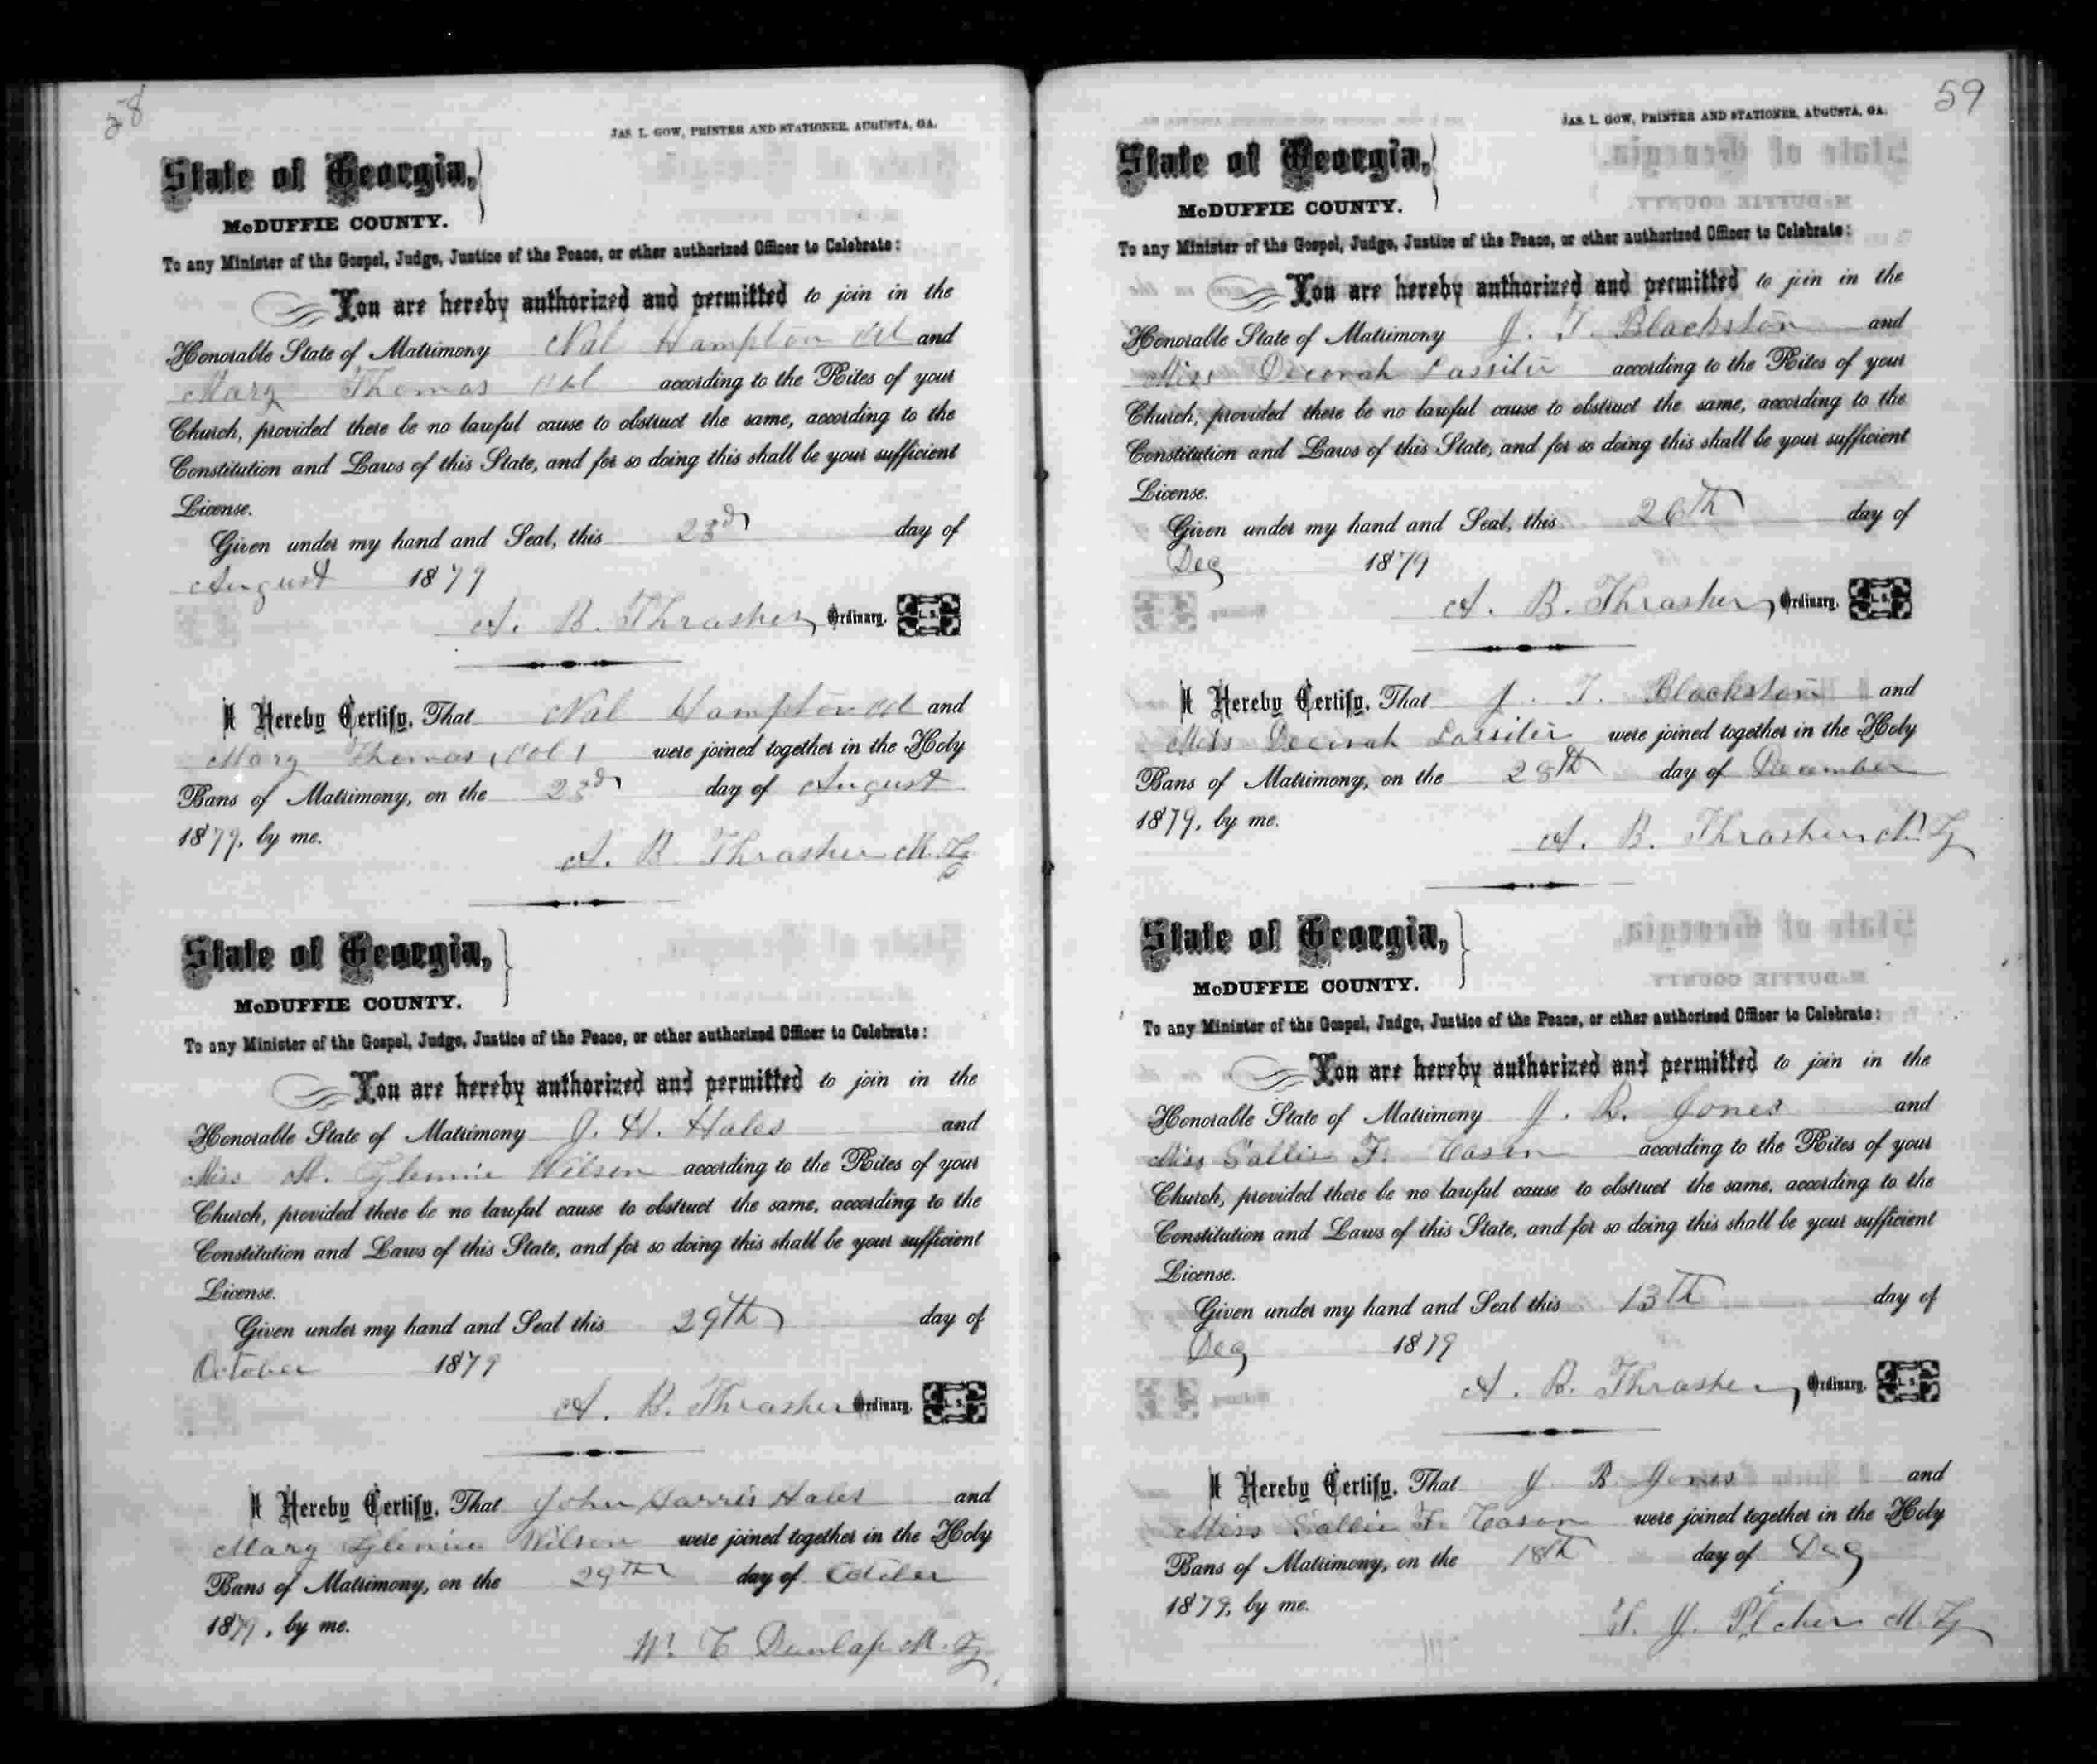 58
JAS. L. GOW, PRINTER AND STATIONER, AUGUSTA, GA.
State of Georgia,
McDUFFIE COUNTY.
To any Minister of the Gospel, Judge, Justice of the Peace, or other authorized Officer to Celebrate:
You are hereby authorized and permitted to join in the
Honorable State of Matrimony Nal Hampton Col and
Mary Thomas Col according to the Rites of your
Church, provided there be no lawful cause to obstruct the same, according to the
Constitution and Laws of this State, and for so doing this shall be your sufficient
License.
Given under my hand and Seal, this 23rd day of
August 1879
A. B. Thrasher, Ordinary. L. S.
I Hereby Certify, That Nal Hampton Col and
Mary Thomas (Col) were joined together in the Holy
Bans of Matrimony, on the 23rd day of August
1879, by me.
A. B. Thrasher M. G.
State of Georgia,
McDUFFIE COUNTY.
To any Minister of the Gospel, Judge, Justice of the Peace, or other authorized Officer to Celebrate:
You are hereby authorized and permitted to join in the
Honorable State of Matrimony J. H. Hales and
Miss M. Glennie Wilson according to the Rites of your
Church, provided there be no lawful cause to obstruct the same, according to the
Constitution and Laws of this State, and for so doing this shall be your sufficient
License.
Given under my hand and Seal this 29th day of
October 1879
A. B. Thrasher Ordinary. L. S.
I Hereby Certify, That John Harris Hales and
Mary Glennie Wilson were joined together in the Holy
Bans of Matrimony, on the 29th day of October
1879, by me.
W. C Dunlap M. G.
59
JAS. L. GOW, PRINTER AND STATIONER, AUGUSTA, GA.
State of Georgia,
McDUFFIE COUNTY.
To any Minister of the Gospel, Judge, Justice of the Peace, or other authorized Officer to Celebrate:
You are hereby authorized and permitted to join in the
Honorable State of Matrimony J. T. Blackston and
Miss Lassiter according to the Rites of your
Church, provided there be no lawful cause to obstruct the same, according to the
Constitution and Laws of this State, and for so doing this shall be your sufficient
License.
Given under my hand and Seal, this 26th day of
Dec 1879
A. B. Thrasher, Ordinary. L. S.
I Hereby Certify, That J. T. Blackston and
Miss Lassiter were joined together in the Holy
Bans of Matrimony, on the 28th day of December
1879, by me.
A. B. Thrasher, M. G.
State of Georgia,
McDUFFIE COUNTY.
To any Minister of the Gospel, Judge, Justice of the Peace, or other authorized Officer to Celebrate:
You are hereby authorized and permitted to join in the
Honorable State of Matrimony J. B. Jones and
Miss Sallie F. Cason according to the Rites of your
Church, provided there be no lawful cause to obstruct the same, according to the
Constitution and Laws of this State, and for so doing this shall be your sufficient
License.
Given under my hand and Seal this 13th day of
Dec 1879
A. B. Thrasher, Ordinary. L. S.
I Hereby Certify, That J B Jones and
Miss Sallie F. Cason were joined together in the Holy
Bans of Matrimony, on the 18th day of Dec
1879, by me.
T. J. M. G.